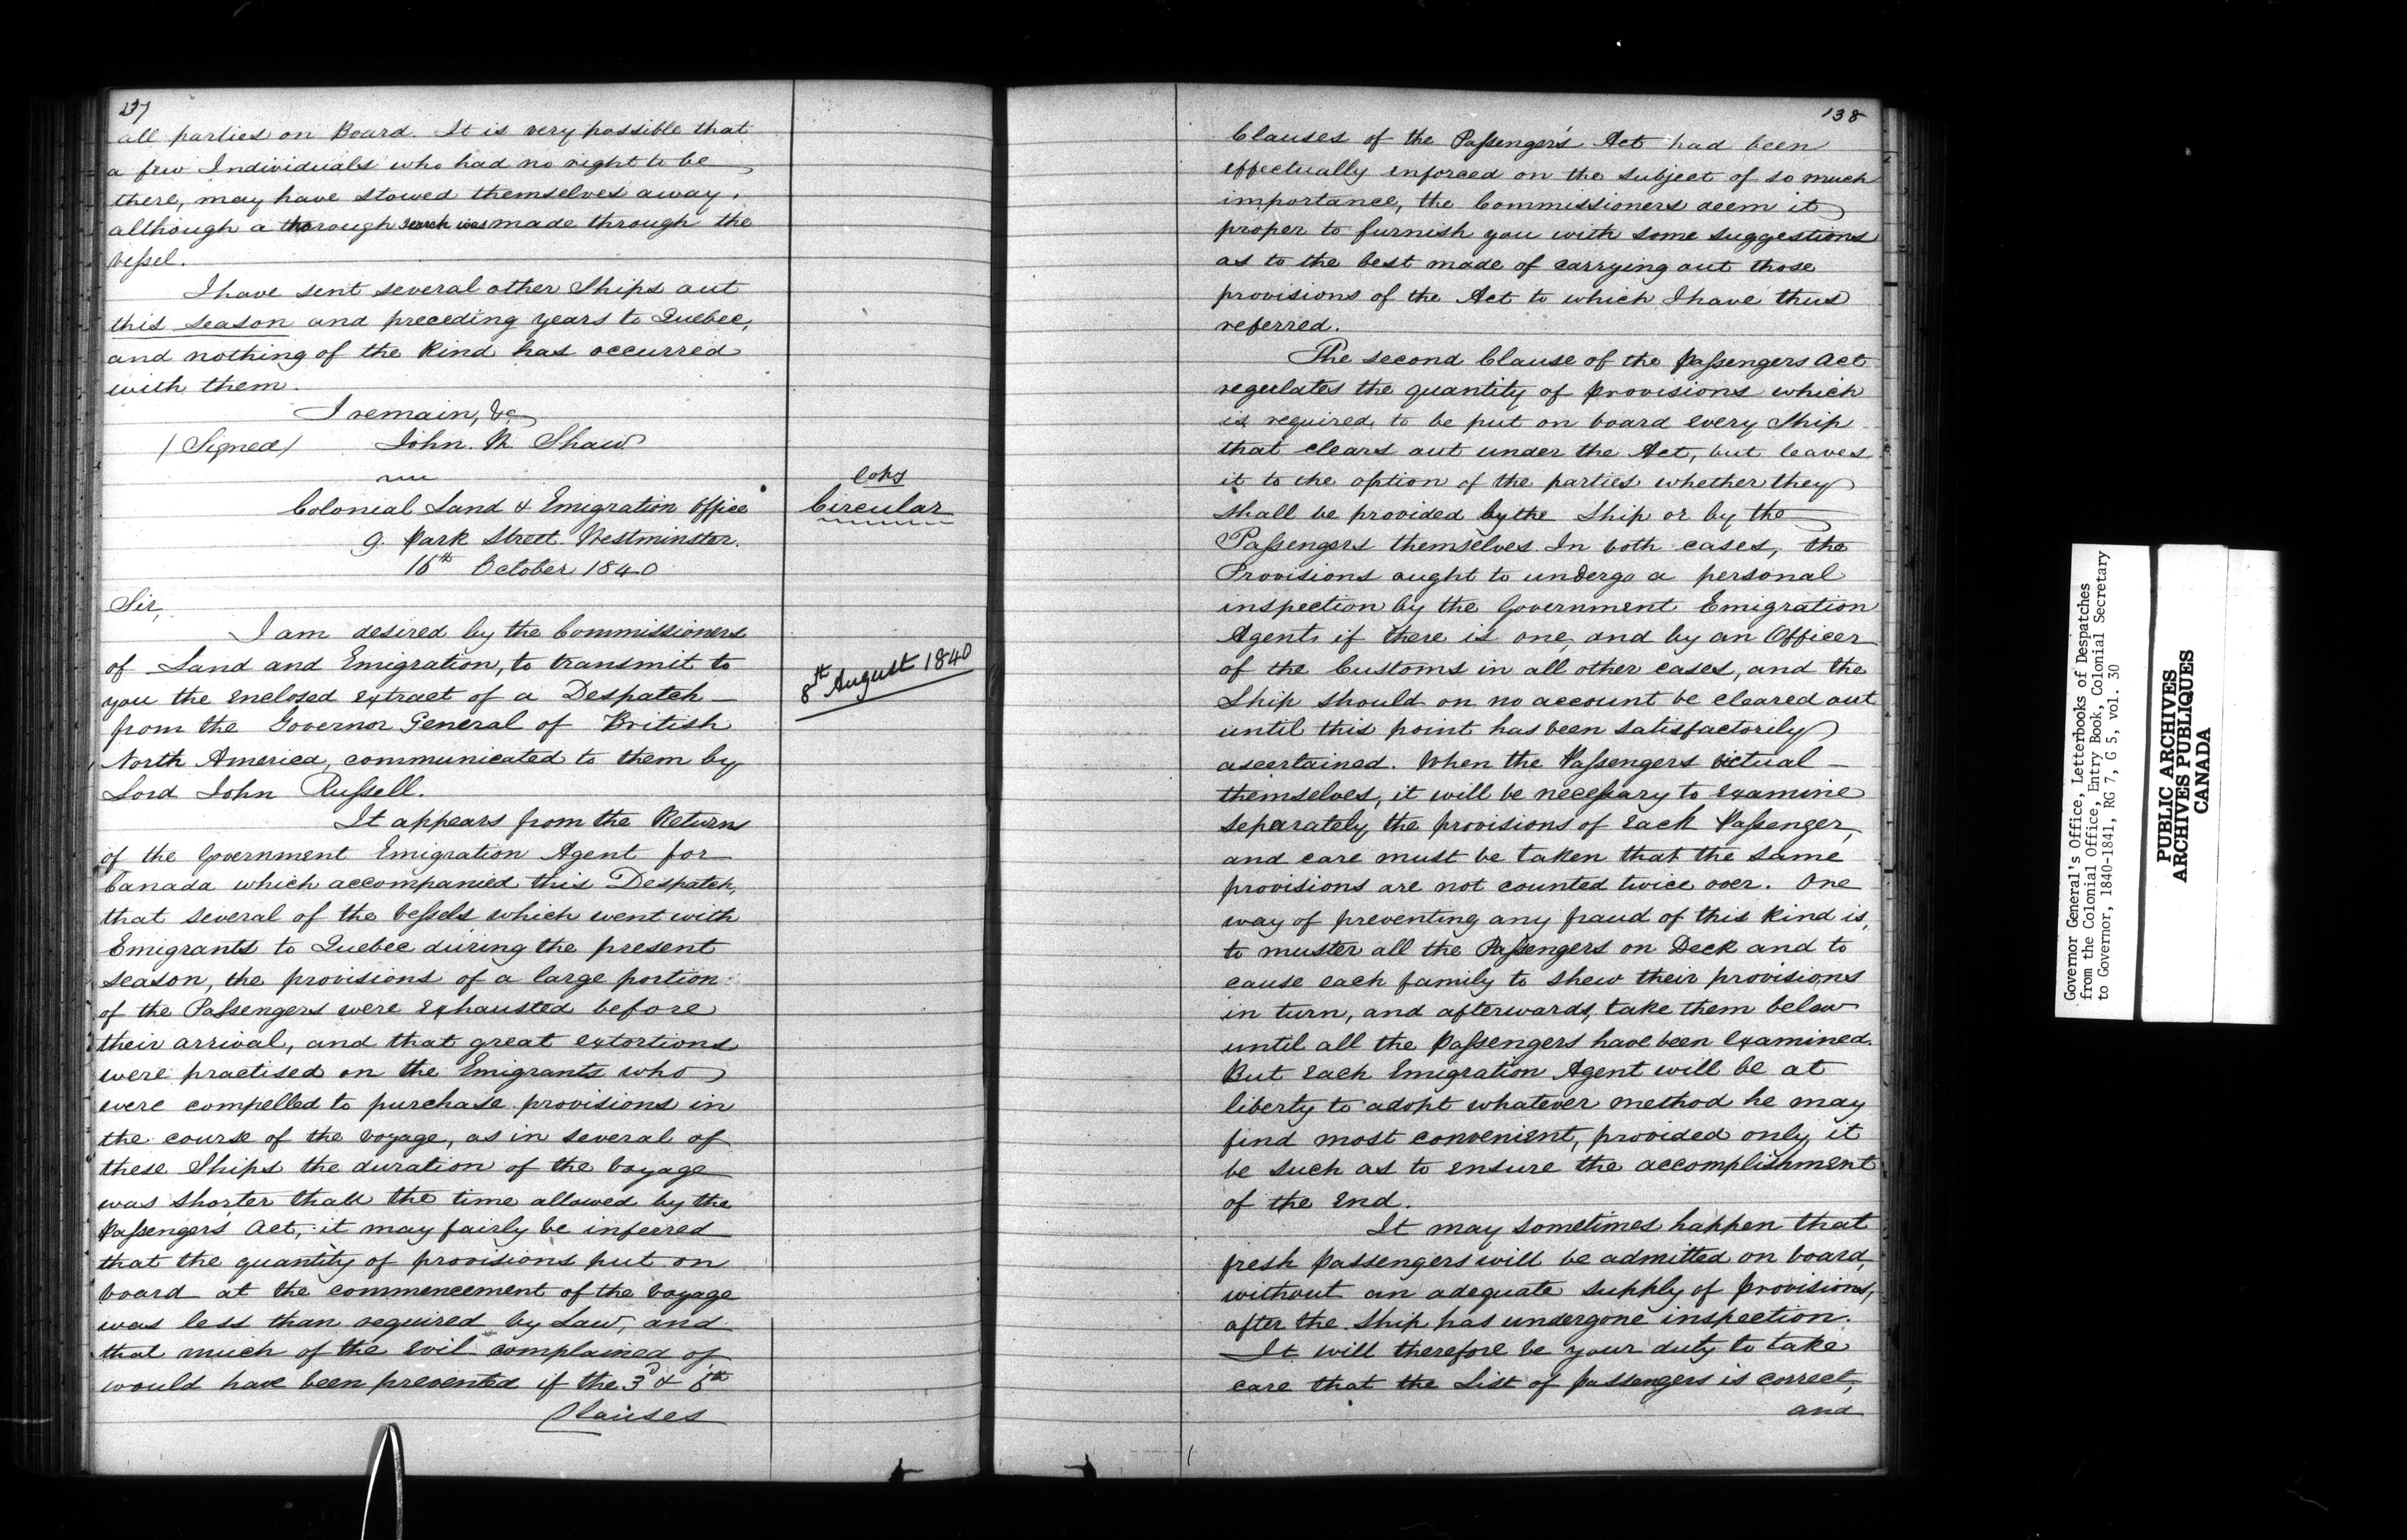 137
all parties on Board. It is very possible that
a few Individuals who had no right to be
there, may have stowed themselves away,
although a thorough search was made through the
vessel.
I have sent several other Ships out
this season and preceding years to Quebec,
and nothing of the kind has occurred
with them.
I remain, &c
(Signed) John. Shaw
Copy
Circular
Colonial Land & Emigration Office
9. Park Street Westminster.
16th October 1840
Sir,
I am desired by the Commissioners
of Land and Emigration, to transmit to
8th August 1840
you the enclosed extract of a Despatch
from the Governor General of British
North America, communicated to them by
Lord John Russell.
It appears from the Returns
of the Government Emigration Agent for
Canada which accompanied this Despatch,
that several of the vessels which went with
Emigrants to Quebec during the present
season, the provisions of a large portion
of the Passengers were exhausted before
their arrival, and that great extortions
were practised on the Emigrants who
were compelled to purchase provisions in
the course of the voyage, as in several of
these Ships the duration of the voyage
was shorter than the time allowed by the
Passengers Act, it may fairly be inferred
that the quantity of provisions put on
board at the commencement of the voyage
was less than required by Law, and
that much of the evil complained of
would have been prevented if the 3d &
Clauses
138
Clauses of the Passenger's Act had been
effectually enforced on the subject of so much
importance, the Commissioners deem it
proper to furnish you with some suggestions
as to the best made of carrying out those
provisions of the Act to which I have thus
referred.
The second Clause of the Passengers Act
regulates the quantity of provisions which
is required to be put on board every Ship
that clears out under the Act, but leaves
it to the option of the parties whether they
shall be provided by the Ship or by the
Passengers themselves. In both cases, the
Provisions ought to undergo a personal
inspection by the Government Emigration
Agent, if there is one, and by an Officer
of the Customs in all other cases, and the
Ship should on no account be cleared out
until this point has been satisfactorily
ascertained. When the Passengers victual
themselves, it will be necessary to examine
separately the provisions of each Passenger,
and care must be taken that the same
provisions are not counted twice over. One
way of preventing any fraud of this kind is,
to muster all the Passengers on Deck and to
cause each family to shew their provisions
in turn, and afterwards, take them below
until all the Passengers have been examined.
But each Emigration Agent will be at
liberty to adopt whatever method he may
find most convenient, provided only it
be such as to ensure the accomplishment
of the End.
It may sometimes happen that
fresh passengers will be admitted on board,
without an adequate supply of provisions,
after the Ship has undergone inspection.
It will therefore be your duty to take
care that the List of passengers is correct,
and
Governor General's Office, Letterbooks of Despatches
from the Colonial Office, Entry Book, Colonial Secretary
to Governor, 1840-1841, RG 7, G 5, vol. 30
PUBLIC ARCHIVES
ARCHIVES PUBLIQUES
CANADA